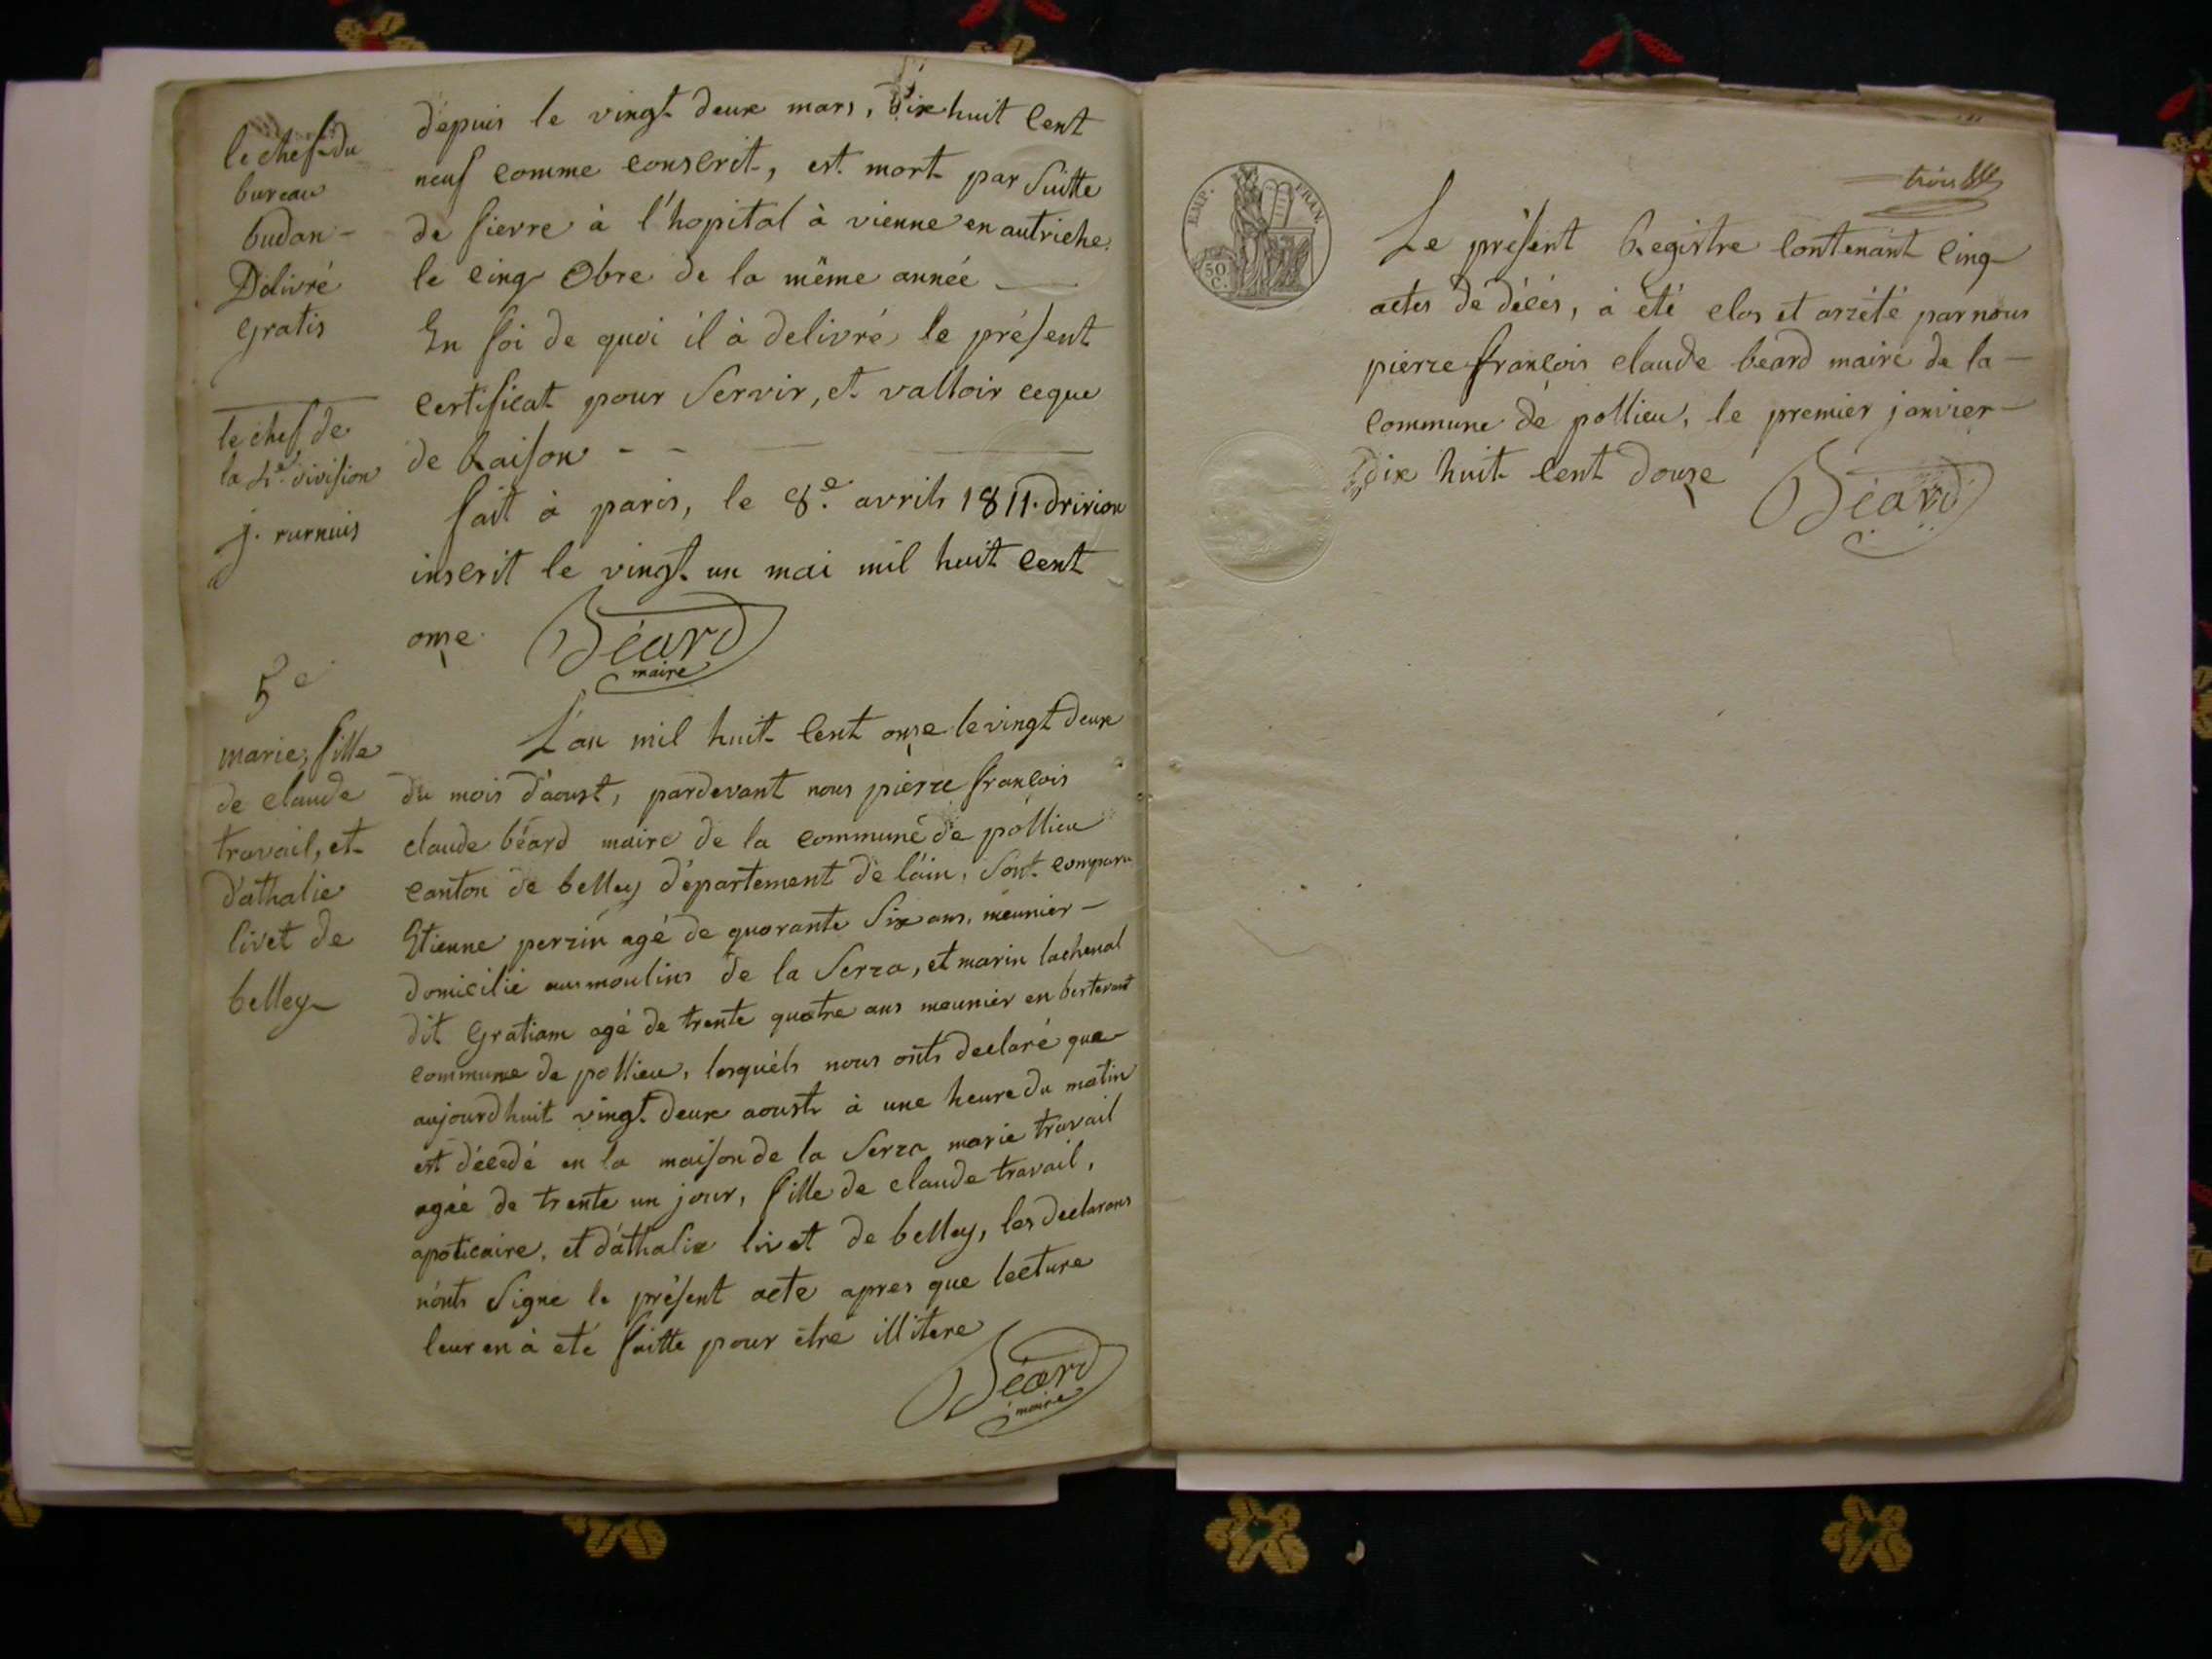 le chef du
bureau
budan -
Délivré
gratis
le chef de
la 4e. division
j.
depuis le vingt deux mars, dix huit cent
neuf comme conscrit, est mort par suitte
de fievre à l'hopital à vienne en autriche.
le cinq 8bre de la même année
En foi de quoi il à delivré le présent
certificat pour servir, et valloir ce que
de Raison - -
fait à paris, le 8.e avrils 1811.
inscrit le vingt un mai mil huit cent
onze.
Béard
maire
5e
marie, fille
de claude
travail, et
d'athalie
livet de
belley
L'an mil huit cent onze le vingt deux
du mois d'aoust, pardevant nous pierre françois
claude béard maire de la commune de pollieu
canton de belley département de l'ain, sont comparu
Etienne perrin agé de quarante six ans, meunier -
domicilié aux moulins de la Serra, et marin lachenal
dit gratiam agé de trente quatre ans meunier en
commune de pollieu, lesquels nous onts declaré que
aujourdhuit vingt deux aoust à une heure du matin
est décedé en la maison de la Serra marie travail
agée de trente un jour, fille de claude travail,
apoticaire, et d'athalie livet de belley, les declarans
n'onts signé le présent acte apres que lecture
leur en à eté faitte pour être illitere
Béard
maire
EMP. FRAN.
50
C.
trois
Le présent Registre contenant cinq
actes de décés, à été clos et arrété par nous
pierre françois claude beard maire de la -
commune de pollieu, le premier janvier -
dix huit cent douze
Béard